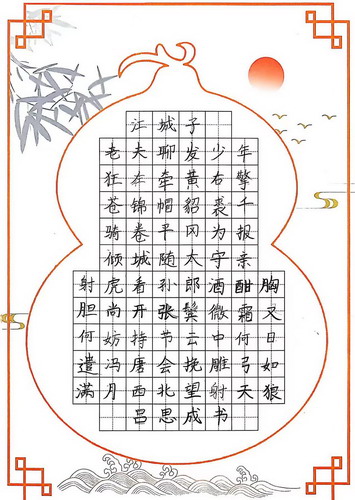 江城子
老夫聊发少年
狂左牵黄右擎
苍锦帽貂裘千
骑卷平冈为报
倾城随太守亲
射虎看孙郎酒酣胸
胆尚开张鬓微霜又
何妨持节云中何日
遣冯唐会挽雕弓如
满月西北望射天狼
吕思成书